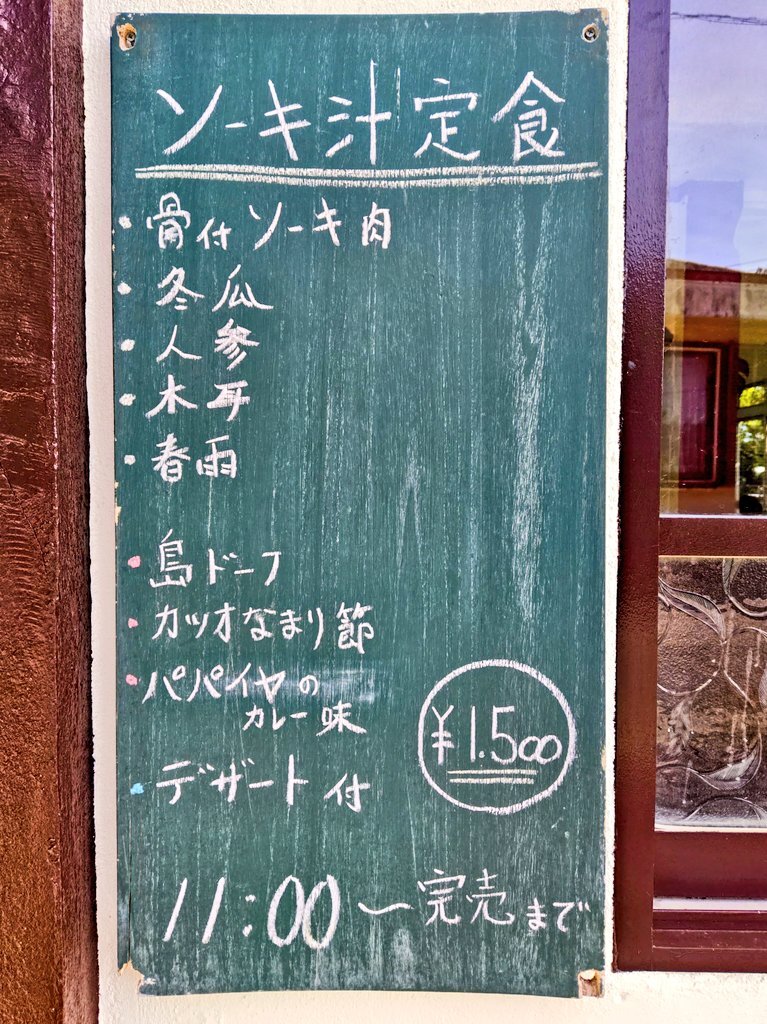 ソーキ汁定食
・骨付ソーキ肉
・冬瓜
・人参
・木耳
・春雨
・島ドーフ
・カツオなまり節
・パパイヤの
カレー味
¥1.500
・デザート付
11:00〜完売まで